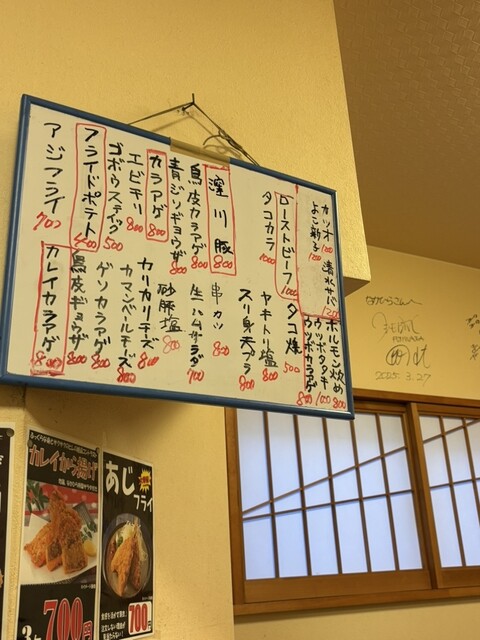 カツオ 1200
よこ新子 1100
清水サバ 1200
ローストビーフ 1000
タコカラ 1000
窪川豚 800
鳥皮カラアゲ 800
青ジソギョウザ 800
カラアゲ 800
エビチリ 800
ゴボウスティック 500
フライドポテト 400
アジフライ 700
ホルモン炒め 800
ウツボタタキ 1200
ウツボカラアゲ 800
タコ焼 500
ヤキトリ塩 800
スリ身天プラ 800
串カツ 800
生ハムサラダ 700
砂豚塩 800
カリカリチーズ 800
カマンベールチーズ 800
ゲソカラアゲ 800
鳥皮ギョウザ 800
カレイカラアゲ 800
2025.3.27
カレイから揚げ
700円
あじフライ
700円